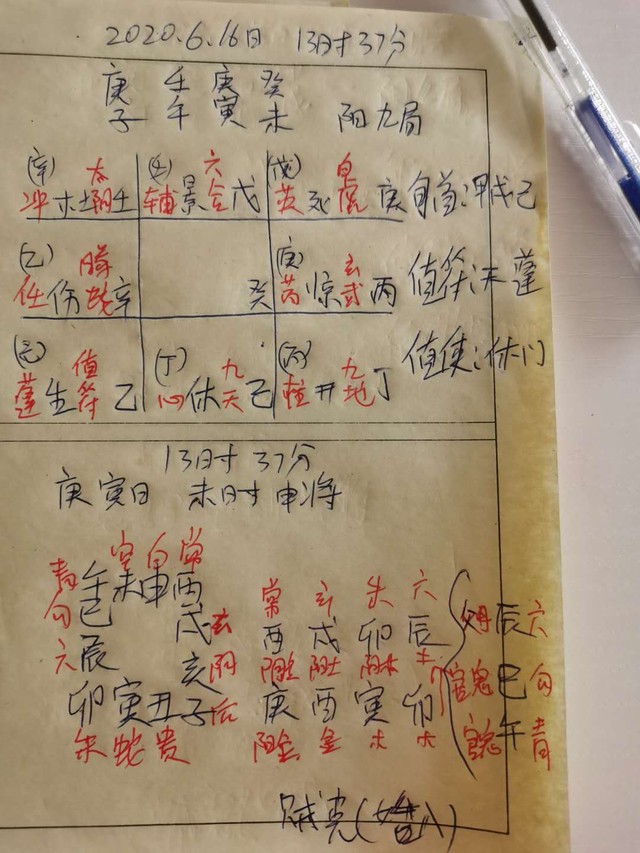 2020.6.16日 13时37分
庚 壬 庚 癸
子 午 寅 未 阳九局
(辛) 太 (壬) 六 (戊) 白
冲 杜 阴 壬 辅 景 合 戊 英 死 虎 庚 旬首:甲戌己
(乙) 腾 (庚) 玄
任 伤 蛇 辛 癸 芮 惊 武 丙 值符:天蓬
(己) 值 (丁) 九 (丙) 九
蓬 生 符 乙 心 休 天 己 柱 开 地 丁 值使:休门
13时37分
庚寅日 未时 申将
空 白 常
青 午 未 申 酉 常 玄 朱 六
勾 巳 戌 玄 酉 戌 卯 辰 辰 六
六 辰 亥 阴 官鬼 巳 勾
卯 寅 丑 子 后 庚 酉 寅 卯 午 青
朱 蛇 贵 阳金 金 木 木